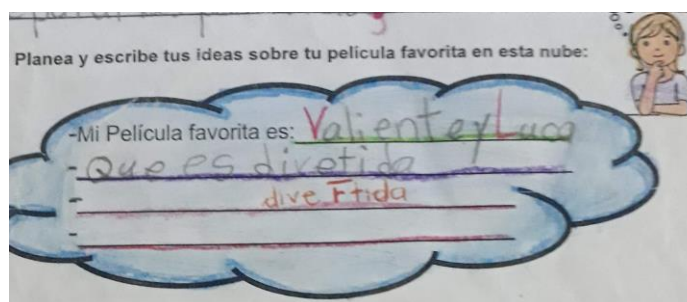 Planea y escribe tus ideas sobre tu película favorita en esta nube:
-Mi Película favorita es: Valiente y Luca
- Que es divetida
- divertida
-